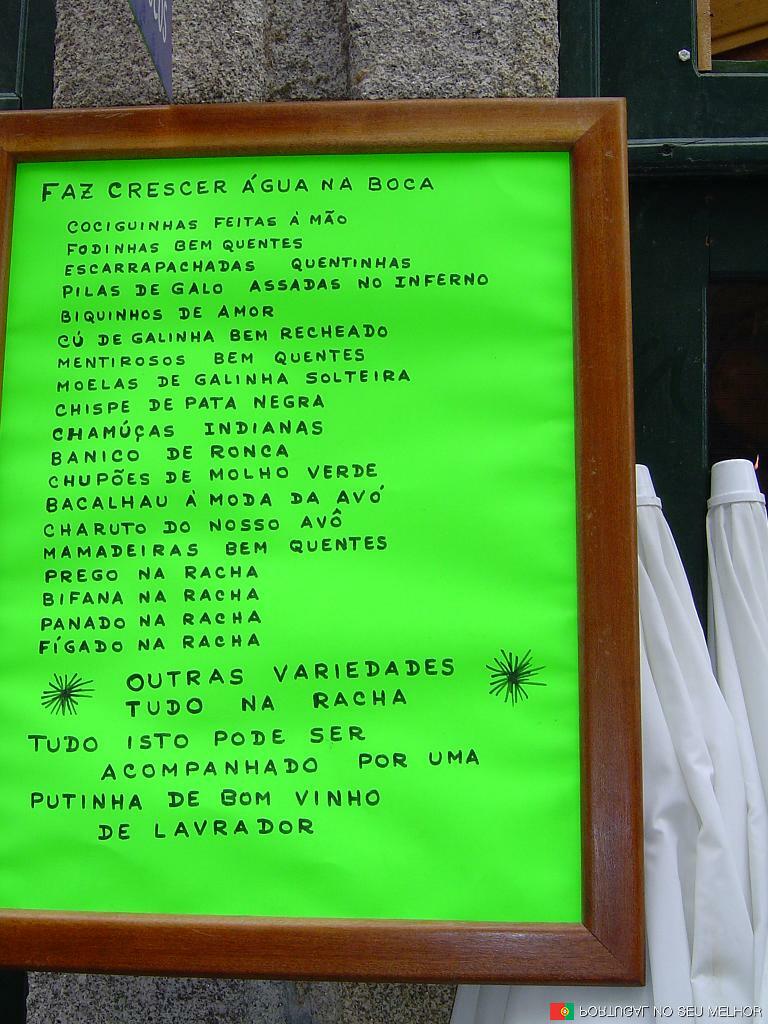 FAZ CRESCER ÁGUA NA BOCA
COCIGUINHAS FEITAS À MÃO
FODINHAS BEM QUENTES
ESCARRAPACHADAS QUENTINHAS
PILAS DE GALO ASSADAS NO INFERNO
BIQUINHOS DE AMOR
CÚ DE GALINHA BEM RECHEADO
MENTIROSOS BEM QUENTES
MOELAS DE GALINHA SOLTEIRA
CHISPE DE PATA NEGRA
CHAMÚÇAS INDIANAS
BANICO DE RONCA
CHUPÕES DE MOLHO VERDE
BACALHAU À MODA DA AVÓ
CHARUTO DO NOSSO AVÔ
MAMADEIRAS BEM QUENTES
PREGO NA RACHA
BIFANA NA RACHA
PANADO NA RACHA
FÍGADO NA RACHA
OUTRAS VARIEDADES
TUDO NA RACHA
TUDO ISTO PODE SER
ACOMPANHADO POR UMA
PUTINHA DE BOM VINHO
DE LAVRADOR
PORTUGAL NO SEU MELHOR